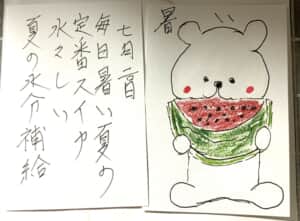 七月二日
毎日暑い夏の
定番スイカ
水々しい
夏の水分補給
暑